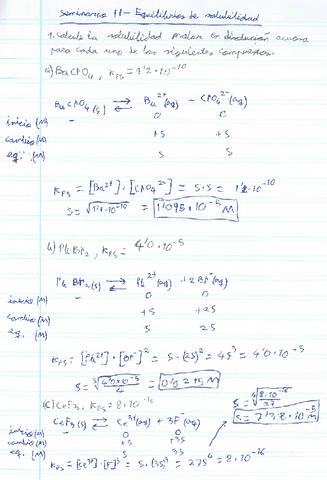 Seminario 11 - Equilibrios de solubilidad
1. Calcula la solubilidad molar en disolución acuosa
para cada uno de los siguientes compuestos.
a) BaCrO4, Kps = 1'2·10^-10
BaCrO4 (s) ⇄ Ba^2+ (aq) - CrO4^2- (aq)
inicio (M) - 0 0
cambio (M) +s +s
eq. (M) s s
Kps = [Ba^2+]·[CrO4^2-] = s·s = 1'2·10^-10
s = √1'2·10^-10 = 1'095·10^-5 M
b) PbBr2, Kps = 4'0·10^-5
PbBr2 (s) ⇄ Pb^2+ (aq) + 2Br^- (aq)
inicio (M) - 0 0
cambio (M) +s +2s
eq. (M) s 2s
Kps = [Pb^2+]·[Br^-]^2 = s·(2s)^2 = 4s^3 = 4'0·10^-5
s = ∛(4'0·10^-5/4) = 0'0215 M
(c) CeF3, Kps = 8·10^-16
CeF3 (s) ⇄ Ce^3+ (aq) + 3F^- (aq)
inicio (M) - 0 0
cambio (M) +s +3s
eq. (M) s 3s
Kps = [Ce^3+]·[F^-]^3 = s·(3s)^3 = 27s^4 = 8·10^-16
s = ∜(8·10^-16/27)